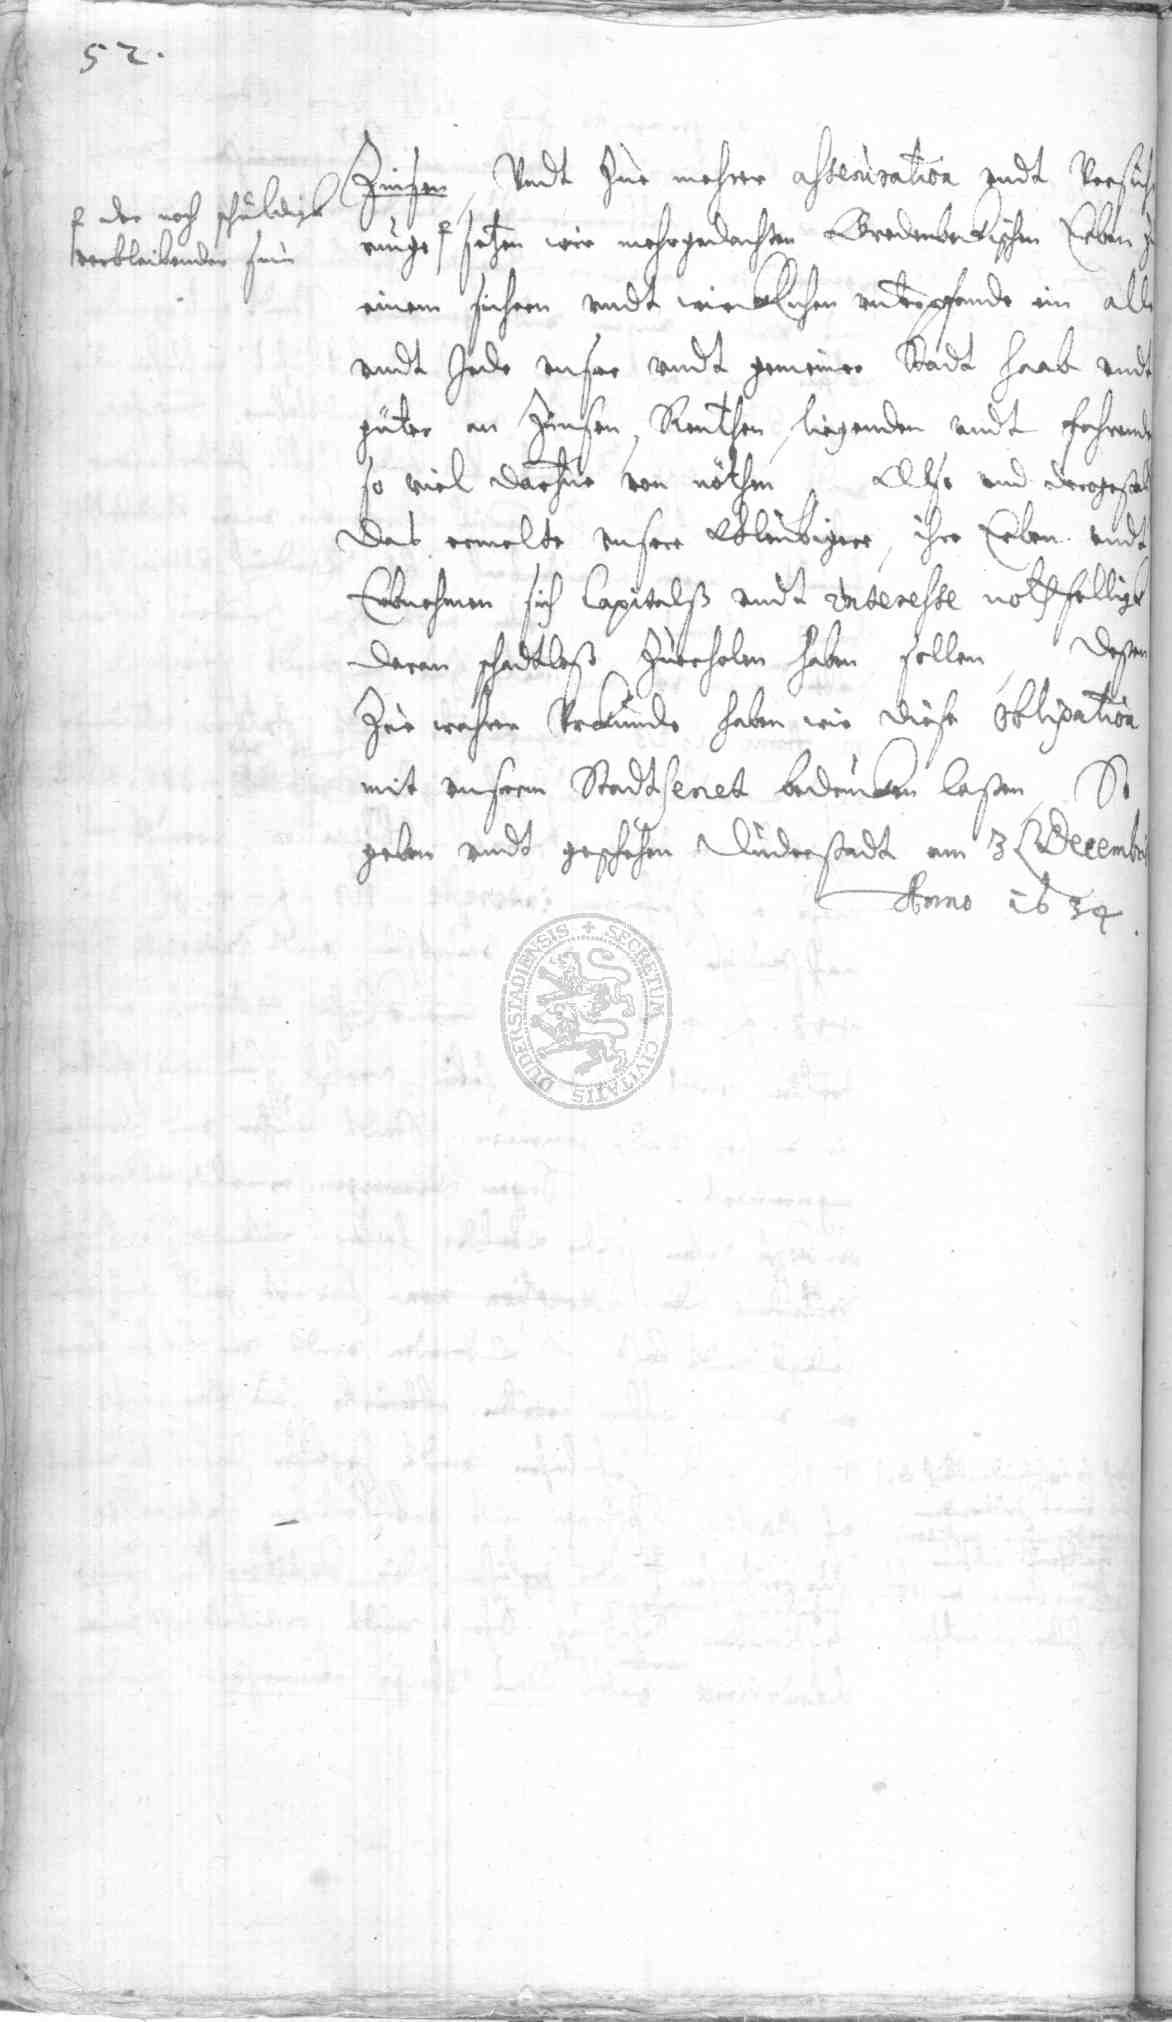 52.
Zinsen, Undt Zue mehrer assecuration undt Versich
runge setzen wir mehrgedachten Bredenbeckischen Erben zu
einem sichern undt wircklichen unterpfande ein alle
undt Jede unser undt gemeiner Stadt haab undt
güter an Zinsen, Renthen, liegenden undt fahrende
so viel darzue von nöthen, Also und dergestalt
Das ermelte unsere Gleubigere, ihre Erben undt
Erbnehmen sich Capitalß undt interesse nothfelligk
daran schadtloß Zuerholen haben sollen, Deßen
Zue wahrer Urkunde haben wir diese obligation
mit unserm Stadtsecret bedrucken laßen, So
geben undt geschehen Duderstadt am 3 Decembris
Anno 1634.
der noch schuldigk
verbleibender sum
DUDERSTADIENSIS + SECRETUM CIVITATIS